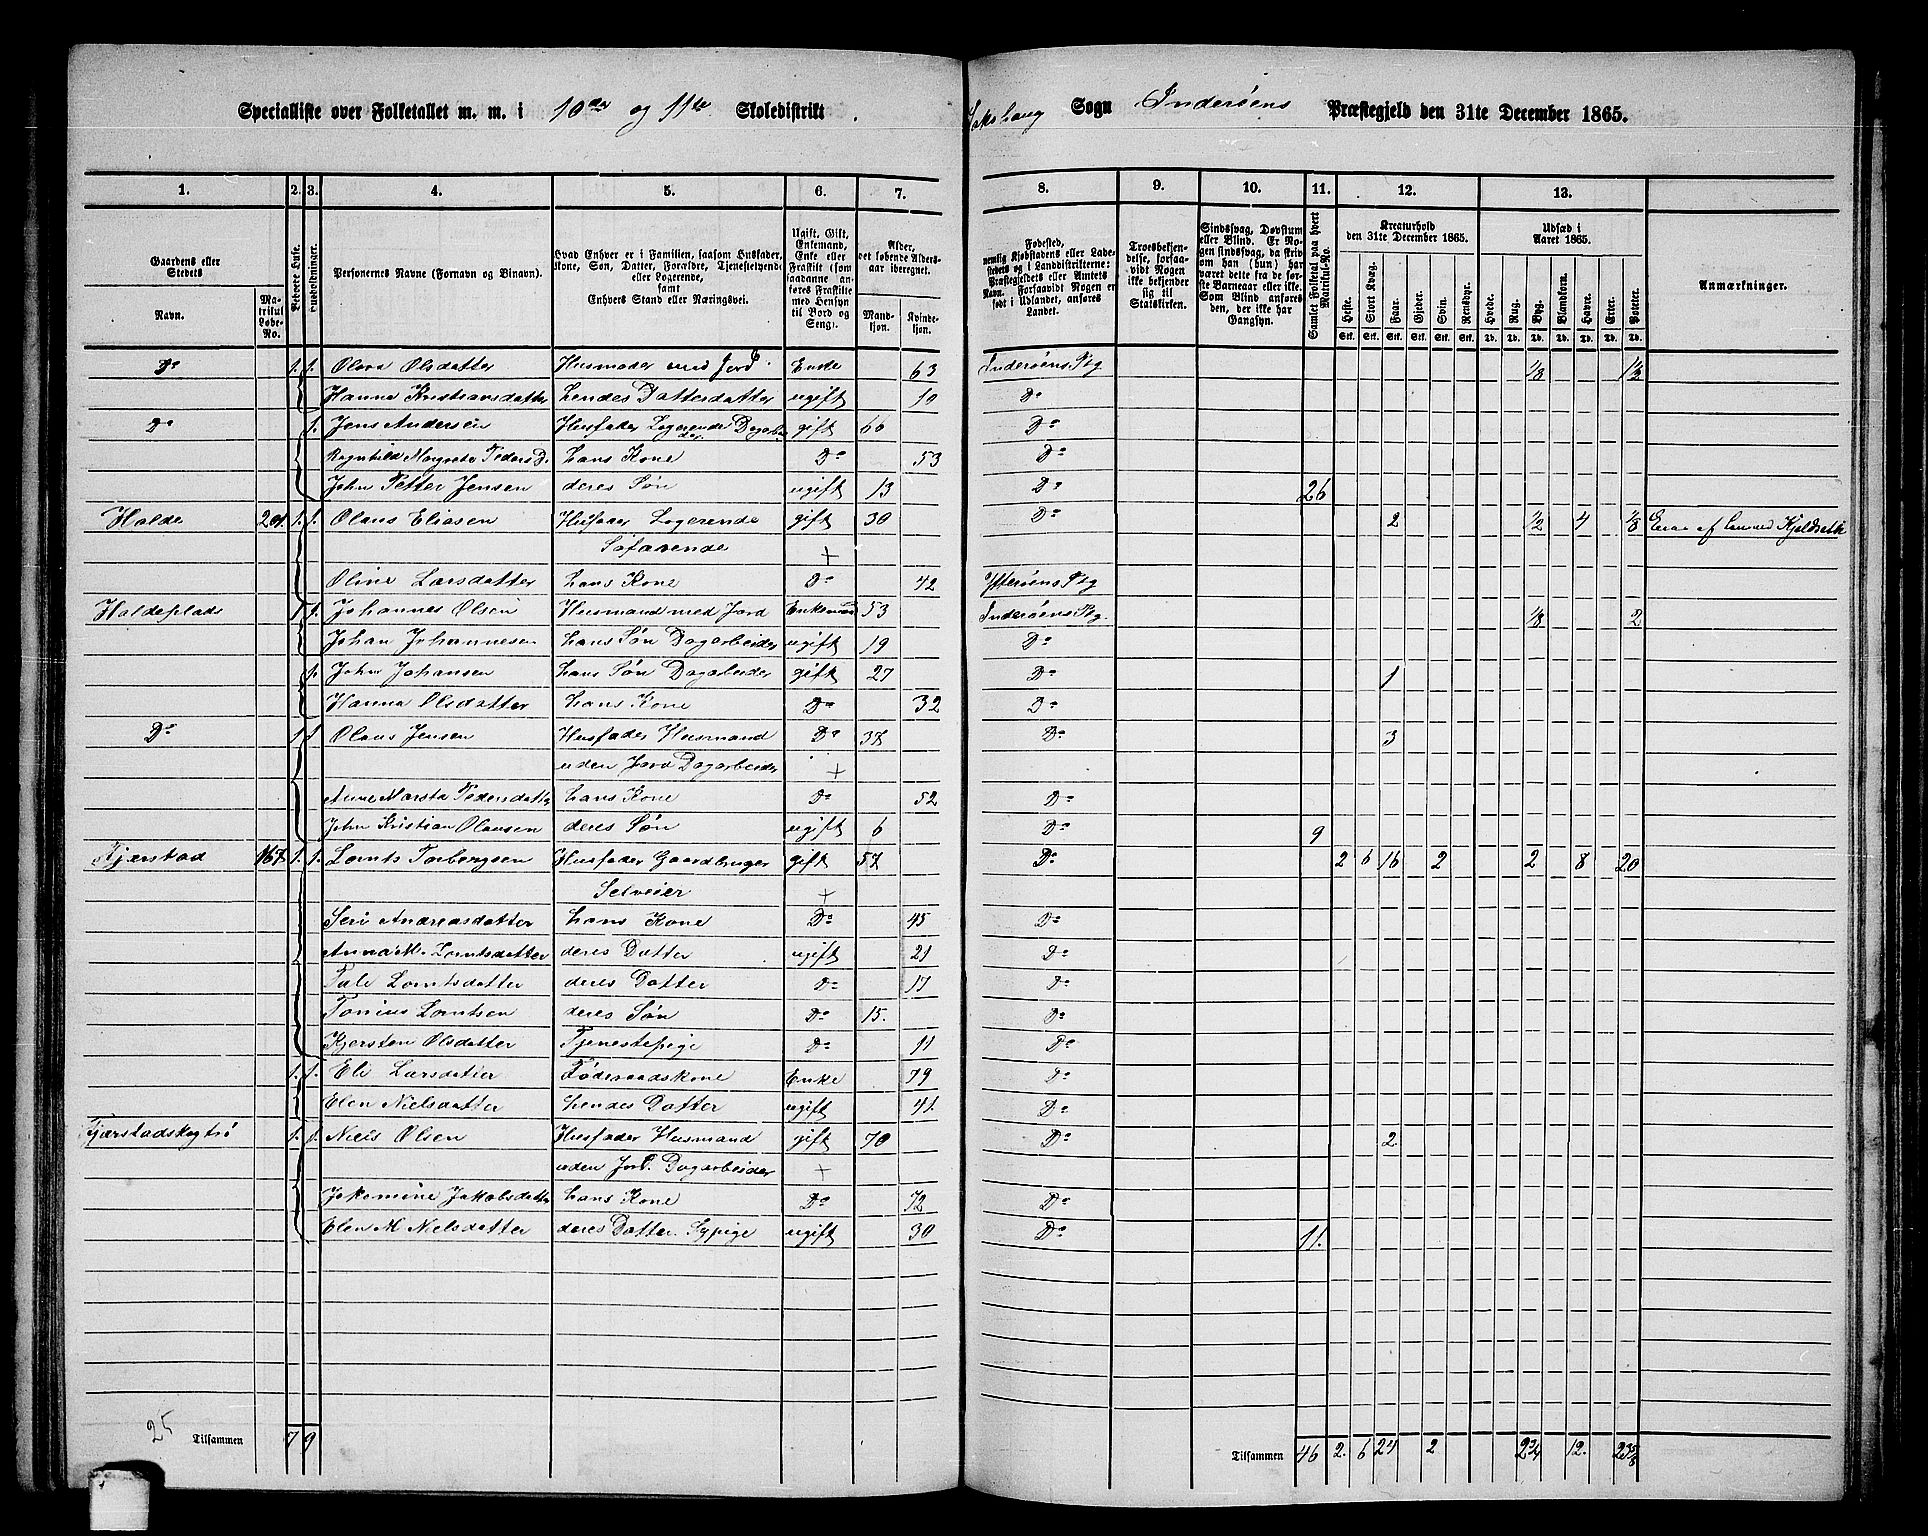 Specialliste over Folketallet m. m. i 10de og 11te Skoledistrikt. Sogn Inderøens Præstegjeld den 31te December 1865.
1. 2. 3. 4. 5. 6. 7. 8. 9. 10. 11. 12. 13.
Gaardens eller Stedets Navn. Matrikul Løbe-No. Personernes Navne (Fornavn og Binavn). Hvad Enhver er i Familien, saasom Husfader, Kone, Søn, Datter, Forældre, Tjenestetyende eller Logerende, samt Enhvers Stand eller Næringsvei. Ugift, Gift, Enkemand, Enke eller Fraskilt (som saadanne anføres Fraskilte med Hensyn til Bord og Seng). Alder, det løbende Alders-aar iberegnet. Mandkjøn. Kvindekjøn. Samlet Folketal paa hvert Matrikul-No. Kreaturhold den 31te December 1865. Udsæd i Aaret 1865. Anmærkninger.
Heste. Stort Kvæg. Faar. Gjeder. Svin. Rensdyr. Hvede. Rug. Byg. Blandkorn. Havre. Erter. Poteter.
Do 1. 1. Olava Olsdatter Husmoder med Jord Enke 63 Inderøens Pg 1/8
Hanna Kristiansdatter hendes Dattersdatter ugift 10 Do
Do 1. Jens Andersen Husfader Logerende gift 66 Do
Ragnhild Margrete Peders D. hans Kone Do 53 Do
John Petter Jensen deres Søn ugift 13 Do 26
Halde 1. 1. Olaus Eliasen Husfader Logerende gift 30 Do 2 1/2 4 1/8
+
Oline Larsdatter hans Kone Do 42 Ytterøens Pg
Haldeplads 1 1. Johannes Olsen Husmand med Jord Enkemand 53 Inderøens Pg. 1/8 2
Johan Johannesen hans Søn Dagarbeider ugift 19 Do
1. John Johansen hans Søn Dagarbeider gift 27 Do 1
Hanna Olsdatter hans Kone Do 32 Do
Do 1 1 Olaus Jensen Husfader Husmand Do 37 Do 3
uden Jord Dagarbeider +
Anne Marta Pedersdatter hans Kone Do 52 Do
John Kristian Olausen deres Søn ugift 6 Do 9
Kjerstad 167 1. 1. Lornts Torbergsen Husfader Gaardbruger gift 57 Do 2 6 16 2 2 8 20
Selveier +
Seri Andreasdatter hans Kone Do 45 Do
Anna M. Lorntsdatter deres Datter ugift 21 Do
Lorntsdatter deres Datter Do 17 Do
Tonius Lorntsen deres Søn Do 15. Do
Kjersten Olsdatter Tjenestepige Do 11 Do
1. 1. Eli Larsdatter Føderaadskone Enke 79 Do
Elen Nielsdatter hendes Datter ugift 41. Do
1. 1. Niels Olsen Husfader Husmand gift 70 Do 2.
uden Jord. Dagarbeider +
Jokomine Jakobsdatter hans Kone Do 72 Do
Elen M Nielsdatter deres Datter. Sypige ugift 30 Do 11.
25 Tilsammen 7 9 Tilsammen 46 2. 6 24 2 2 3/4 12. 23 5/8